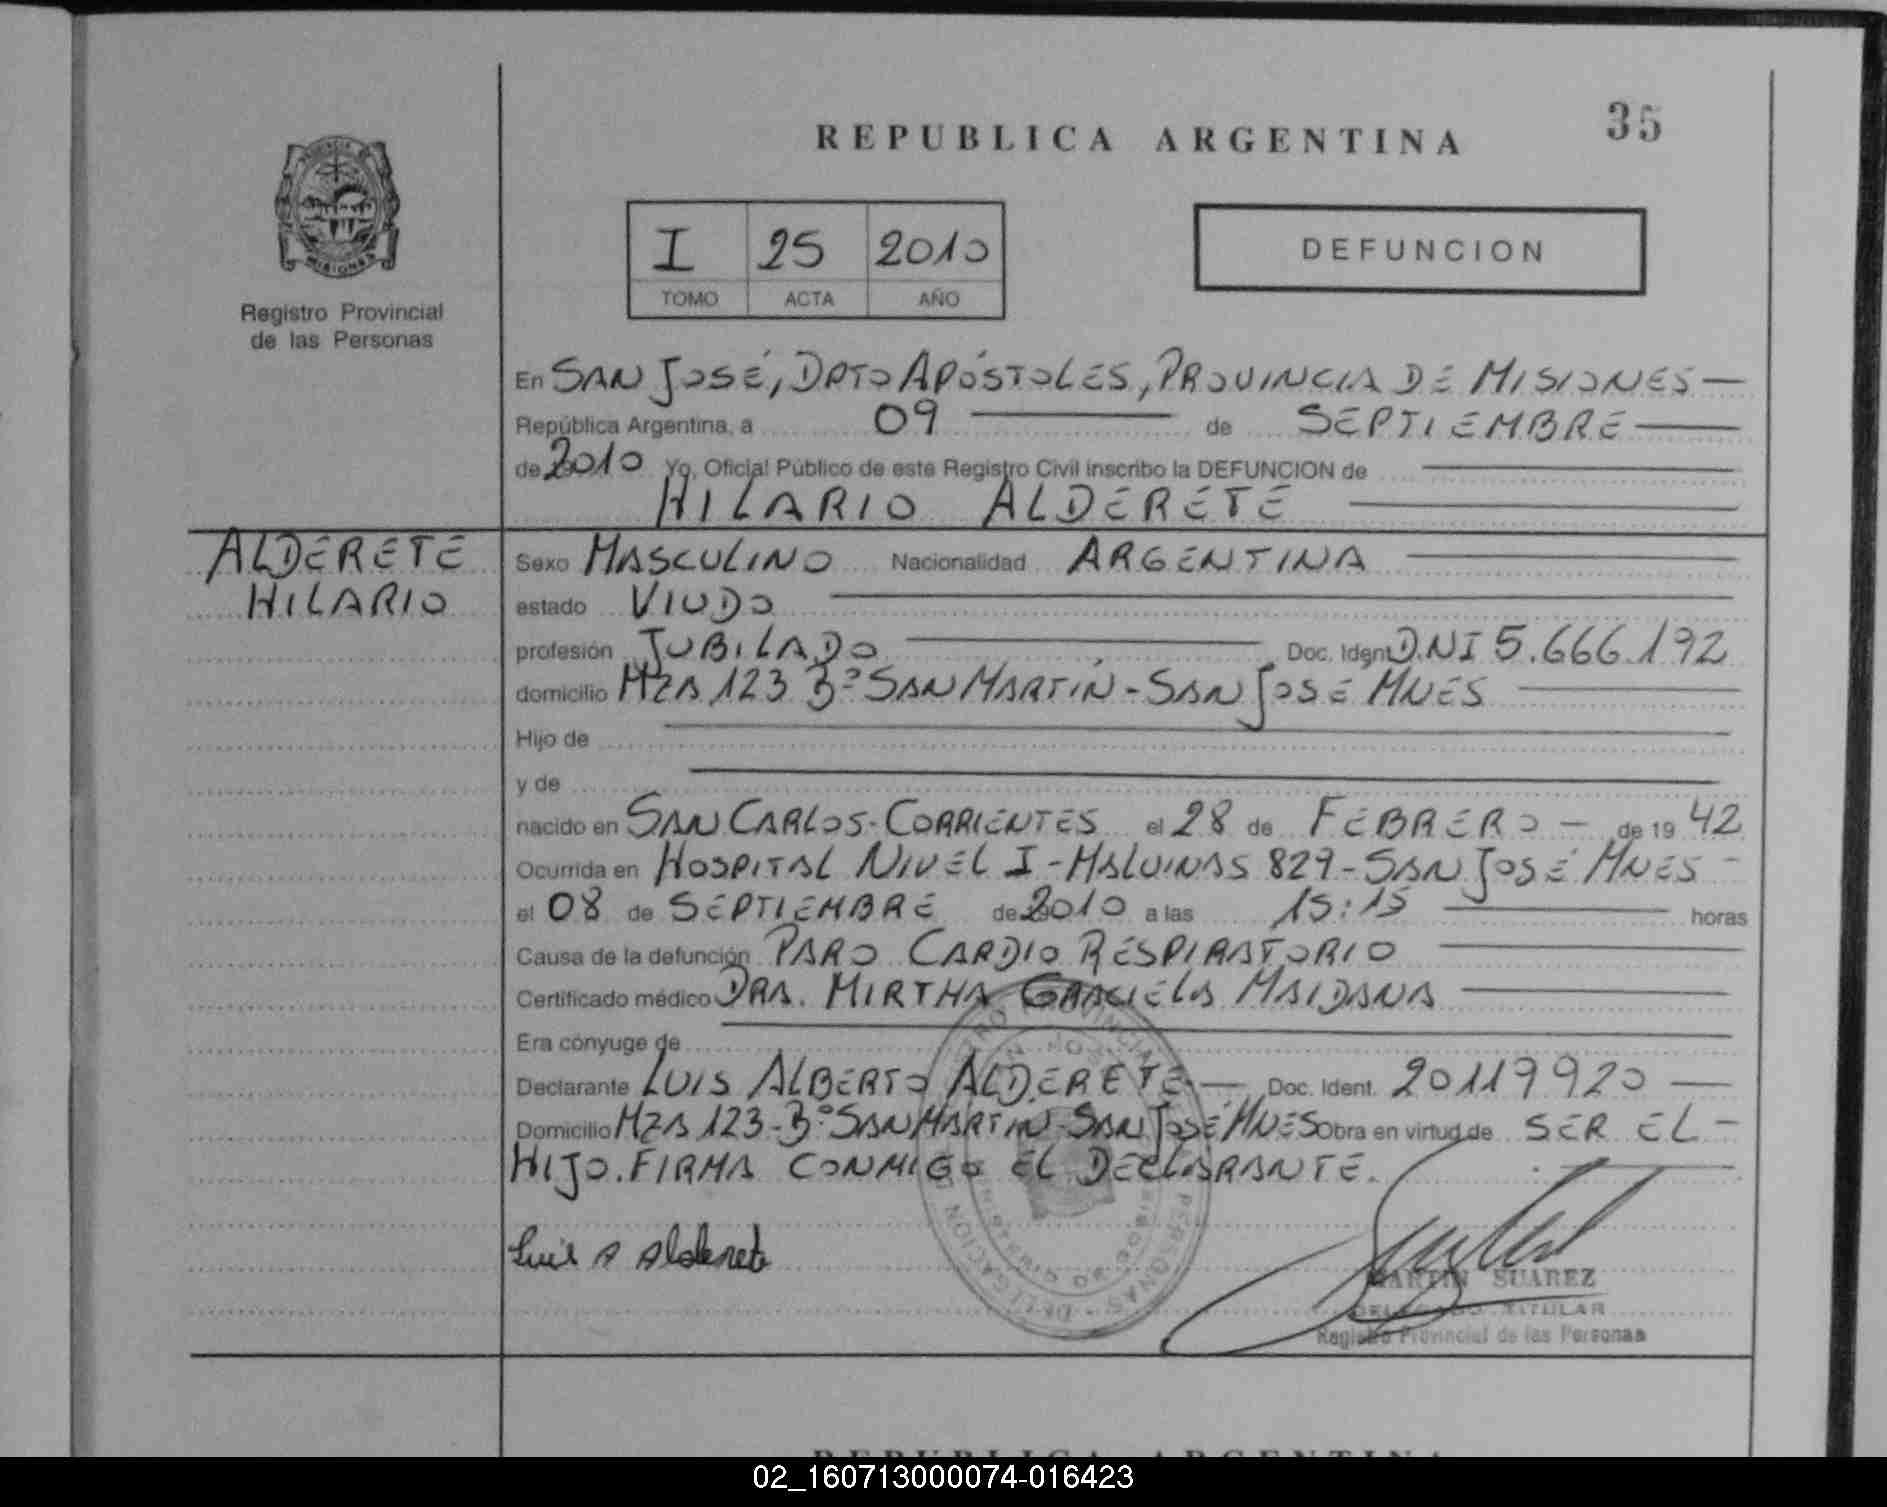 35
REPUBLICA ARGENTINA
I 25 2010
TOMO ACTA AÑO
DEFUNCION
MISIONES
Registro Provincial
de las Personas
En SAN JOSÉ, DPTO APÓSTOLES, PROVINCIA DE MISIONES
República Argentina, a 09 de SEPTIEMBRE
de 2010 Yo, Oficial Público de este Registro Civil inscribo la DEFUNCION de
HILARIO ALDERETE
ALDERETE
HILARIO
Sexo MASCULINO Nacionalidad ARGENTINA
estado VIUDO
profesión JUBILADO Doc. Ident. D.N.I 5.666.192
domicilio MZA 123 Bº SAN MARTÍN - SAN JOSÉ MNES
Hijo de
y de
nacido en SAN CARLOS - CORRIENTES el 28 de FEBRERO - de 19 42
Ocurrida en HOSPITAL NIVEL I - MALVINAS 829 - SAN JOSÉ MNES -
el 08 de SEPTIEMBRE de 2010 a las 15:15 horas
Causa de la defunción PARO CARDIO RESPIRATORIO
Certificado médico DRA. MIRTHA GRACIELA MAIDANA
Era cónyuge de
Declarante LUIS ALBERTO ALDERETE Doc. Ident. 20119920
Domicilio MZA 123 - Bº SAN MARTIN - SAN JOSÉ MNES Obra en virtud de SER EL -
HIJO. FIRMA CONMIGO EL DECLARANTE.
Luis A Alderete
MARTIN SUAREZ
DELEGADO TITULAR
Registro Provincial de las Personas
REPUBLICA ARGENTINA
02_160713000074-016423